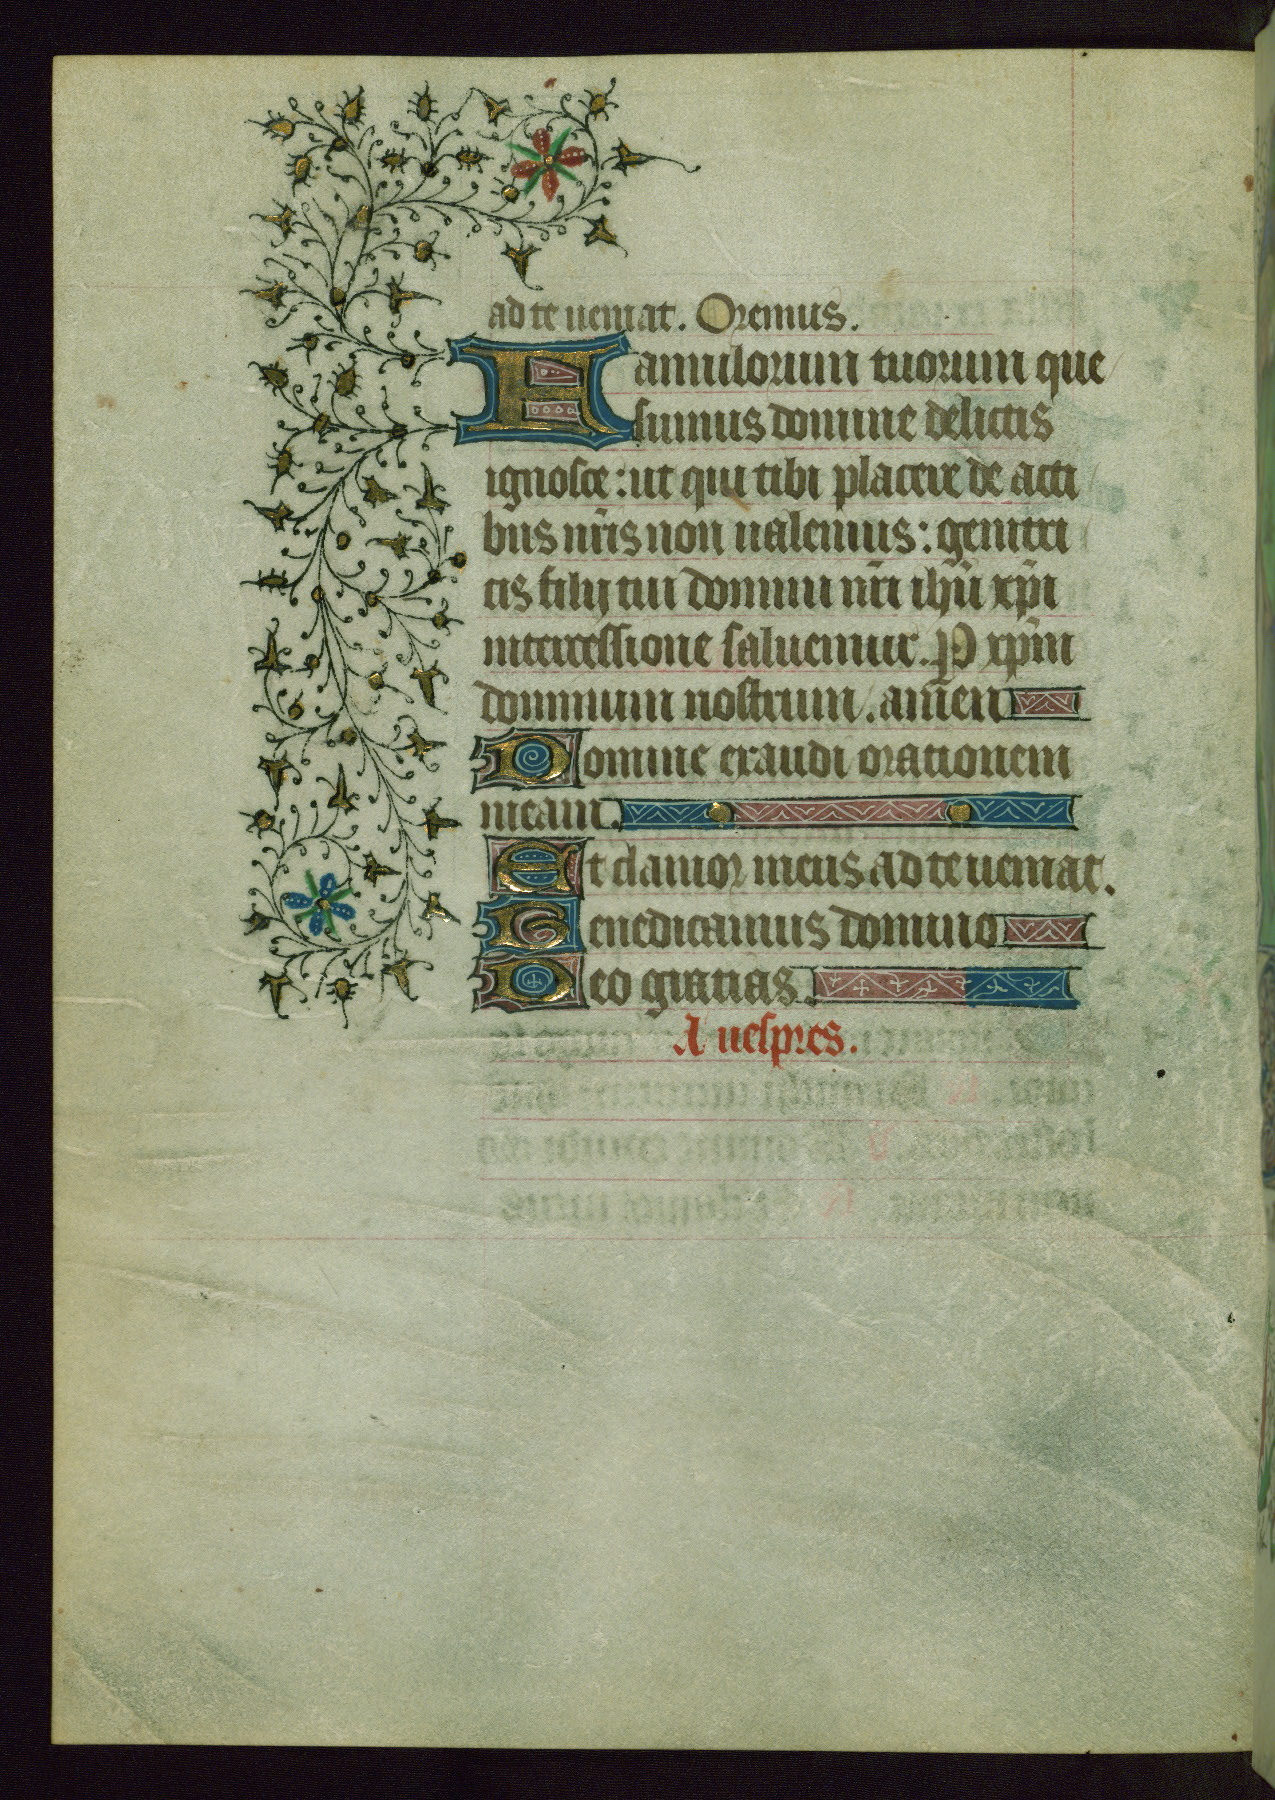 ad te ueniat. Oremus.
Famulorum tuorum que
sumus domine delictis
ignosce: ut qui tibi placere de acti
bus nr̄is non ualemus: genitri
cis filij tui domini nr̄i ihū xp̄i
intercessione saluemur. P xp̄m
dominum nostrum. amen
Domine exaudi orationem
meam.
Et clamor meus ad te ueniat.
Benedicamus domino
Deo gratias.
A uespres.